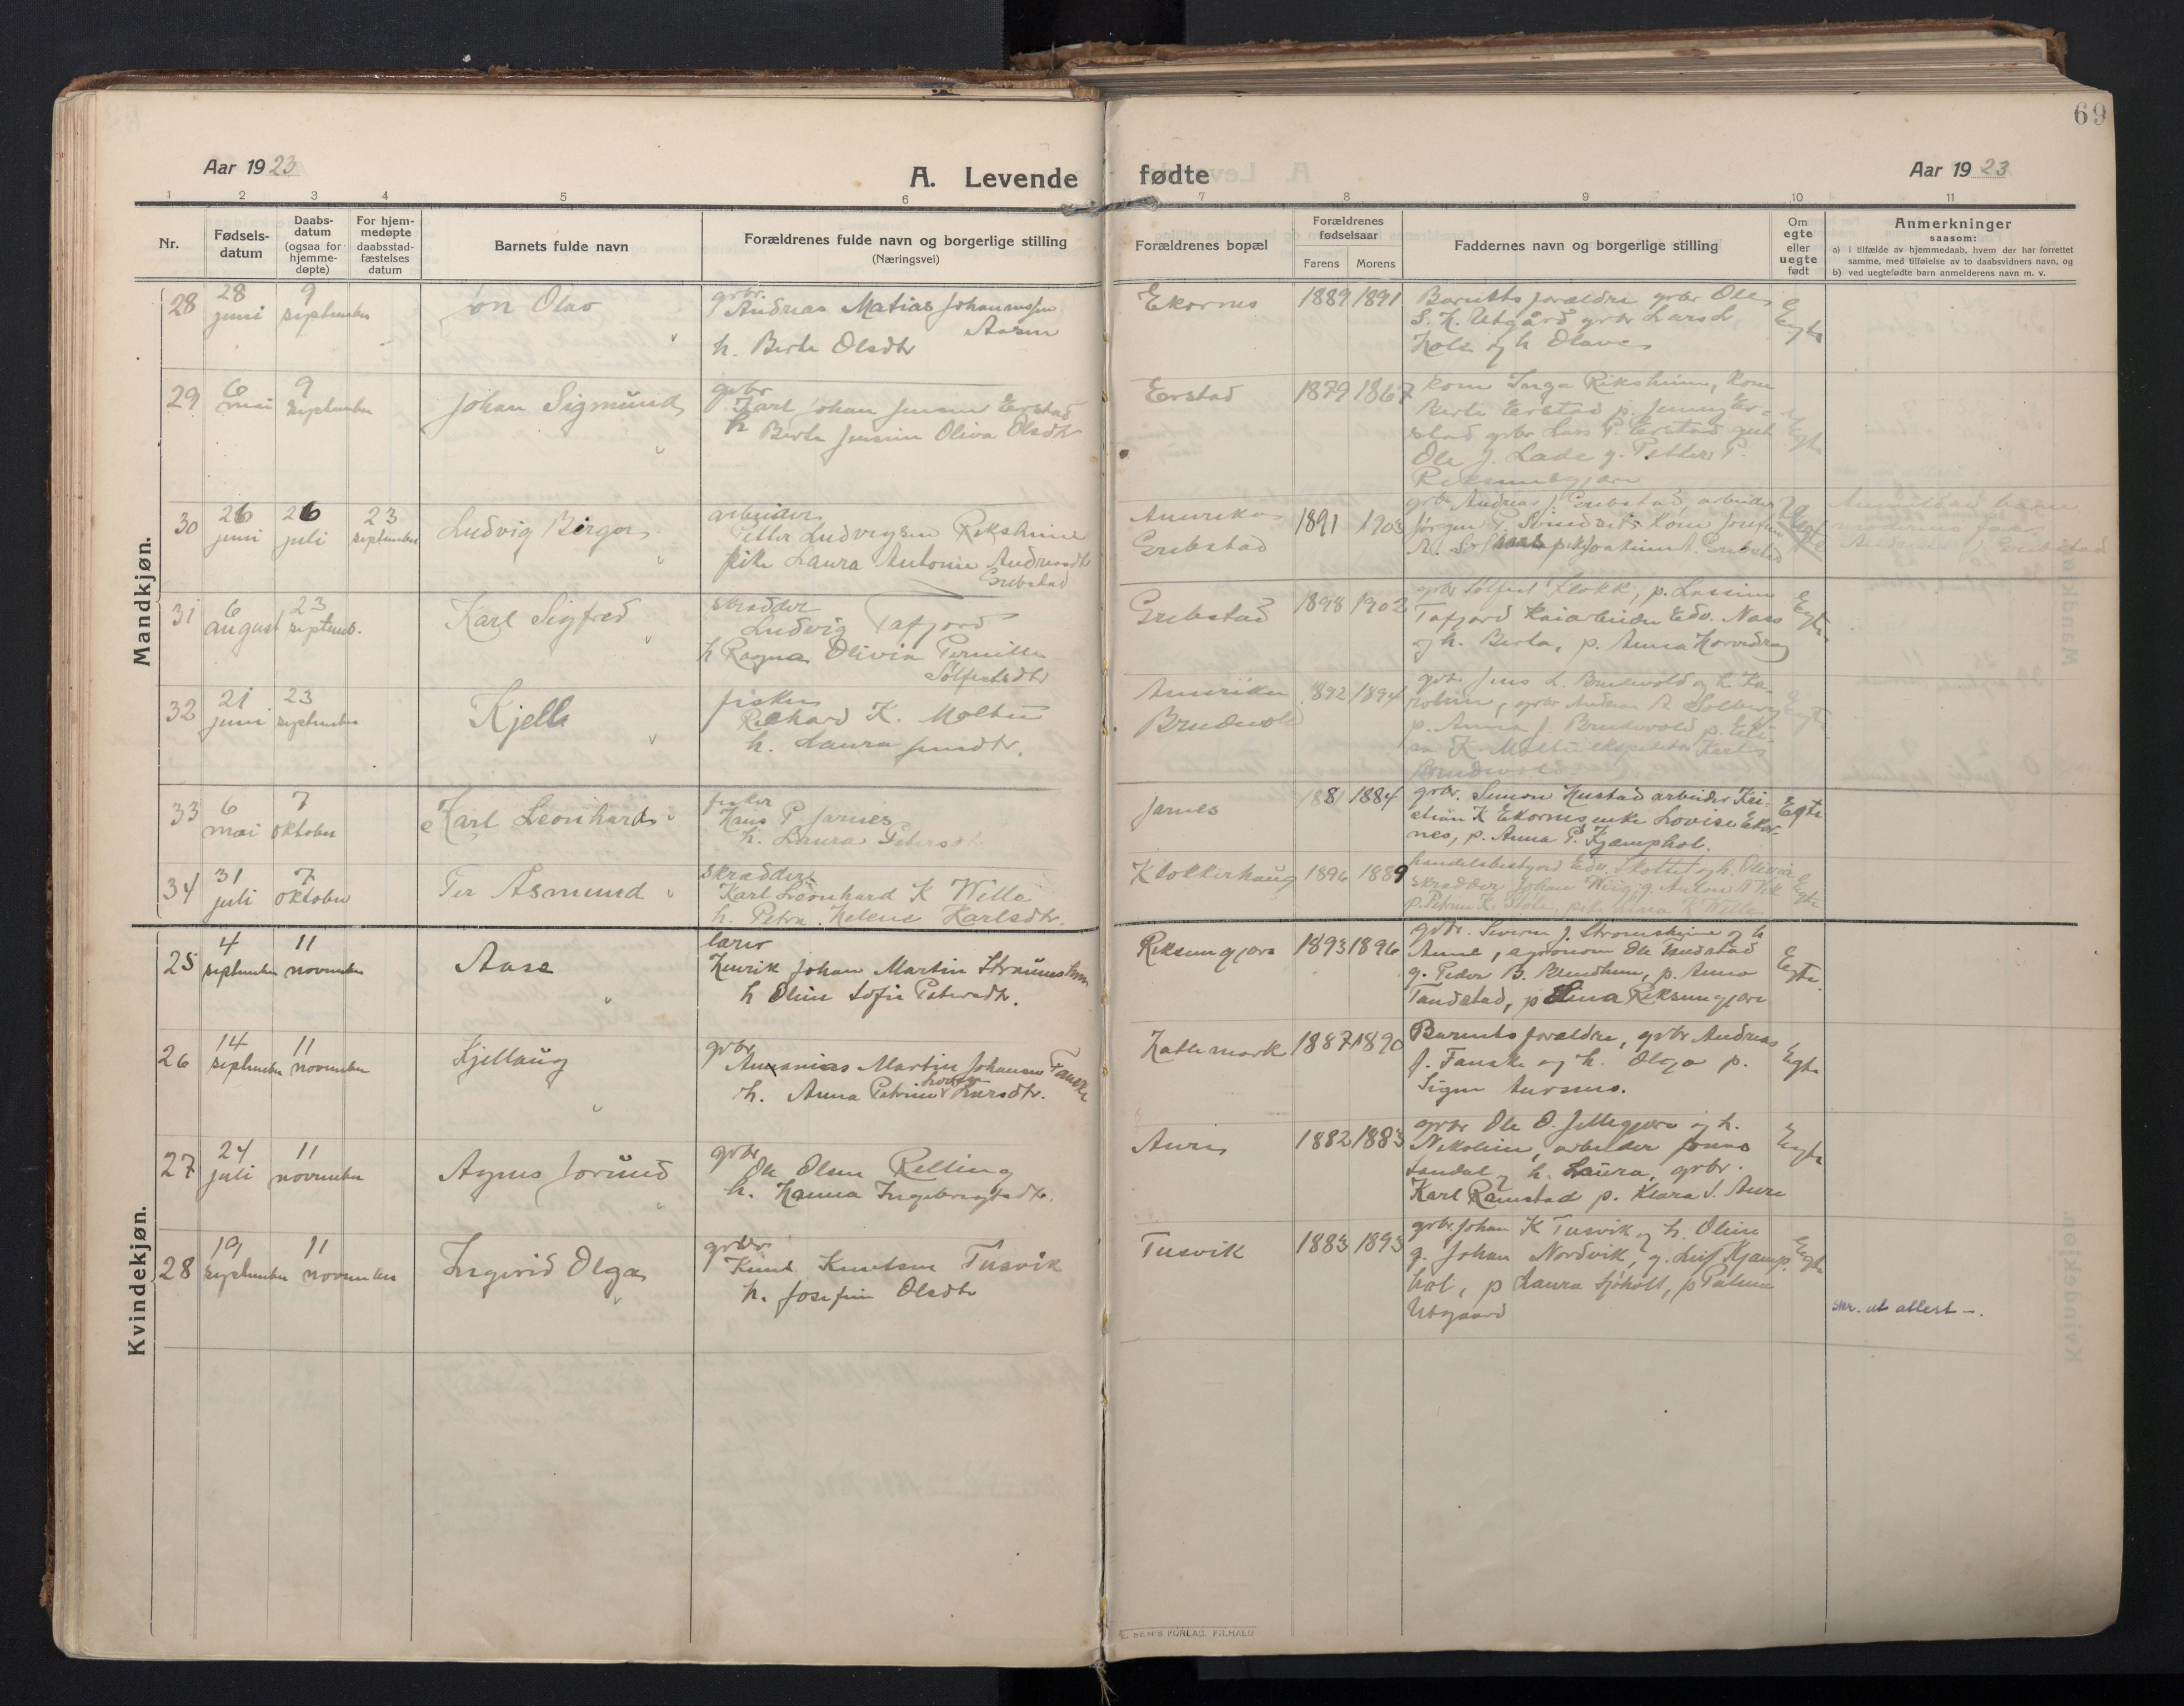 69
Aar 1923
A. Levende fødte
Aar 1923
1 2 3 4 5 6 7 8 9 10 11
Nr.
Fødsels-
datum
Daabs-
datum
(ogsaa for
hjemme-
døpte)
For hjem-
medøpte
daabsstad-
fæstelses
datum
Barnets fulde navn
Forældrenes fulde navn og borgerlige stilling
(Næringsvei)
Forældrenes bopæl
Forældrenes
fødselsaar
Farens Morens
Faddernes navn og borgerlige stilling
Om
egte
eller
uegte
født
Anmerkninger
saasom:
a) i tilfælde av hjemmedaab, hvem der har forrettet
samme, med tilføielse av to daabsvidners navn, og
b) ved uegtefødte barn anmelderens navn m. v.
Mandkjøn.
28
28 juni
9 september
Jon Olav
grbr.
Andreas Matias Johanessen
Aasen
h. Berte Olsdtr
Ekornes
1889 1891
Barnets foreldre grbr Ole
S. K. Utgård grbr Lars L
Hole og h Olave
Egte
29
6 mai
9 september
Johan Sigmund
grbr
Karl Johan Jensen Erstad
h Berte Jensine Oliva Olsdtr
Erstad
1879 1867
kone Inga Riksheim, kone
Berte Erstad p. Jenny Er-
stad grbr Lars P. Erstad gut
Ole J. Lade g. Petter P.
Riksemgjære
Egte
30
26 juni
26 juli
23 september
Ludvig Birger
arbeider
Petter Ludvigsen Riksheim
pike Laura Antonie Andreasdtr
Grebstad
Amerika
Grebstad
1891 1903
grbr Andreas J Grebstad, arbeider
Jørgen P. kone Josefine
Uegte
moderens far
Andreas J Grebstad
31
6 august
23 septemb.
Karl Sigfred
skrædder
Ludvig Tafjord
h Ragna Olivia Pernille
Sølfestdtr
Grebstad
1898 1902
grbr Sølfest Klokk, p. Lassine
Tafjord Kaiarbeider Edv. Næss
og h. Berta, p. Anna
Egte
32
21 juni
23 september
Kjell
fisker
Richard K. Moltu
h. Laura Jensdtr.
Amerika
Brudevold
1892 1894
grbr Jens L. Brudevold og h. Ka-
roline, grbr Andreas A Solberg
p. Anna J. Brudevold p. Eli-
sa K. Moltu ekspeditør
Brudevold
Egte
33
6 mai
7 oktober
Karl Leonhard
fisker
Hans P Jarnes
h. Laura Petersd
Jarnes
1881 1884
grbr. Simon Hustad arbeider Kri-
stian K Ekornes enke Lovise Ekor-
nes, p. Anna P. Kjæmphol.
Egte
34
31 juli
7 oktober
Per Asmund
skrædder
Karl Leonhard K Wille
h. Petra Helene Karlsdtr.
Klokkerhaug
1896 1889
handelsbestyrer Edv. Skottet og h. Olivia
skrædder Johan Wiig g. Anton A Vik
p. Petrine K.
Egte
Kvindekjøn.
25
4 september
11 november
Aase
lærer
Henrik Johan Martin Straumsheim
h Oline Sofie Petersdtr.
Riksemgjære
1893 1896
grbr. Severin J. Straumsheim og h
Anne, agronom Ole Tandstad
g. Peder B. Blindheim, p. Anna
Tandstad, p Elina Riksemgjære
Egte.
26
14 september
11 november
Kjellaug
grbr
Ananias Martin Johansen Fauske
h. Anna Petrine Lovise Larsdtr.
Hattemark
1887 1890
Barnets foreldre, grbr Andreas
J. Fauske og h. Olga p.
Signe Aursnes.
Egte
27
24 juli
11 november
Agnes Jorund
grbr
Ole Olsen Relling
h. Hanna Ingebrigtsdtr.
Aure
1882 1883
grbr Ole O. Jellegjære og h.
Nikoline, arbeider Jonas
Landal og h. Laura, grbr.
Karl Ramstad p. Klara S. Aure
Egte
28
19 september
11 november
Ingvrid Olga
grbr
Knut Knutsen Tusvik
h. Josefine Olsdtr
Tusvik
1883 1893
grbr. Johan K Tusvik og h. Oline
g. Johan Nordvik, g. Leif Kjæmp-
hol, p Laura Sjøholt, p Paline
Utgaard
Egte
skr. ut attest —.
E. SEM'S FORLAG, FR.HALD